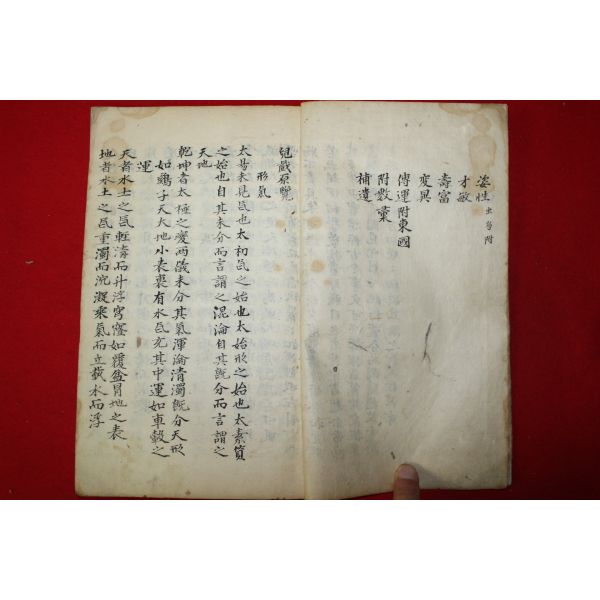 姿性 出芻附
才敏
壽富
變異
傳運附東國
附數彙
補遺
兒戱原覽
形氣
太易未見氣也太初氣之始也太始形之始也太素質
之始也自其未分而言謂之混淪自其旣分而言謂之
天地
乾坤者太極之變兩儀未分其氣渾淪清濁旣分天形
如鷄子天大地小表裏有水氣充其中運如車轂之
運
天者水土之氣輕清而升浮穹窿如覆盆冒地之表
地者水土之氣重濁而沉凝乘氣而立載水而浮